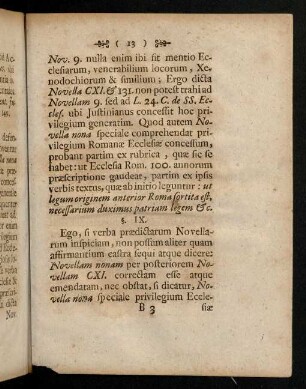 ( 13 )
Nov. 9. nulla enim ibi fit mentio Ec-
clesiarum, venerabilium locorum, Xe-
nodochiorum & similium; Ergo dicta
Novella CXI. & 131. non potest trahi ad
Novellam 9. sed ad L. 24. C. de SS. Ec-
cles. ubi Justinianus concessit hoc pri-
vilegium generatim. Quod autem No-
vella nona speciale comprehendat pri-
vilegium Romanæ Ecclesiæ concessum,
probant partim ex rubrica, quæ sic se
habet: ut Ecclesia Rom. 100. annorum
præscriptione gaudeat, partim ex ipsis
verbis textus, quæ ab initio leguntur: ut
legum originem anterior Roma sortita est,
necessarium duximus patriam legem &c.
§. IX.
Ego, si verba prædictarum Novella-
rum inspiciam, non possum aliter quam
affirmantium castra sequi atque dicere:
Novellam nonam per posteriorem No-
vellam CXI. correctam esse atque
emendatam, nec obstat, si dicatur, No-
vella nona speciale privilegium Eccle-
B 3
siæ